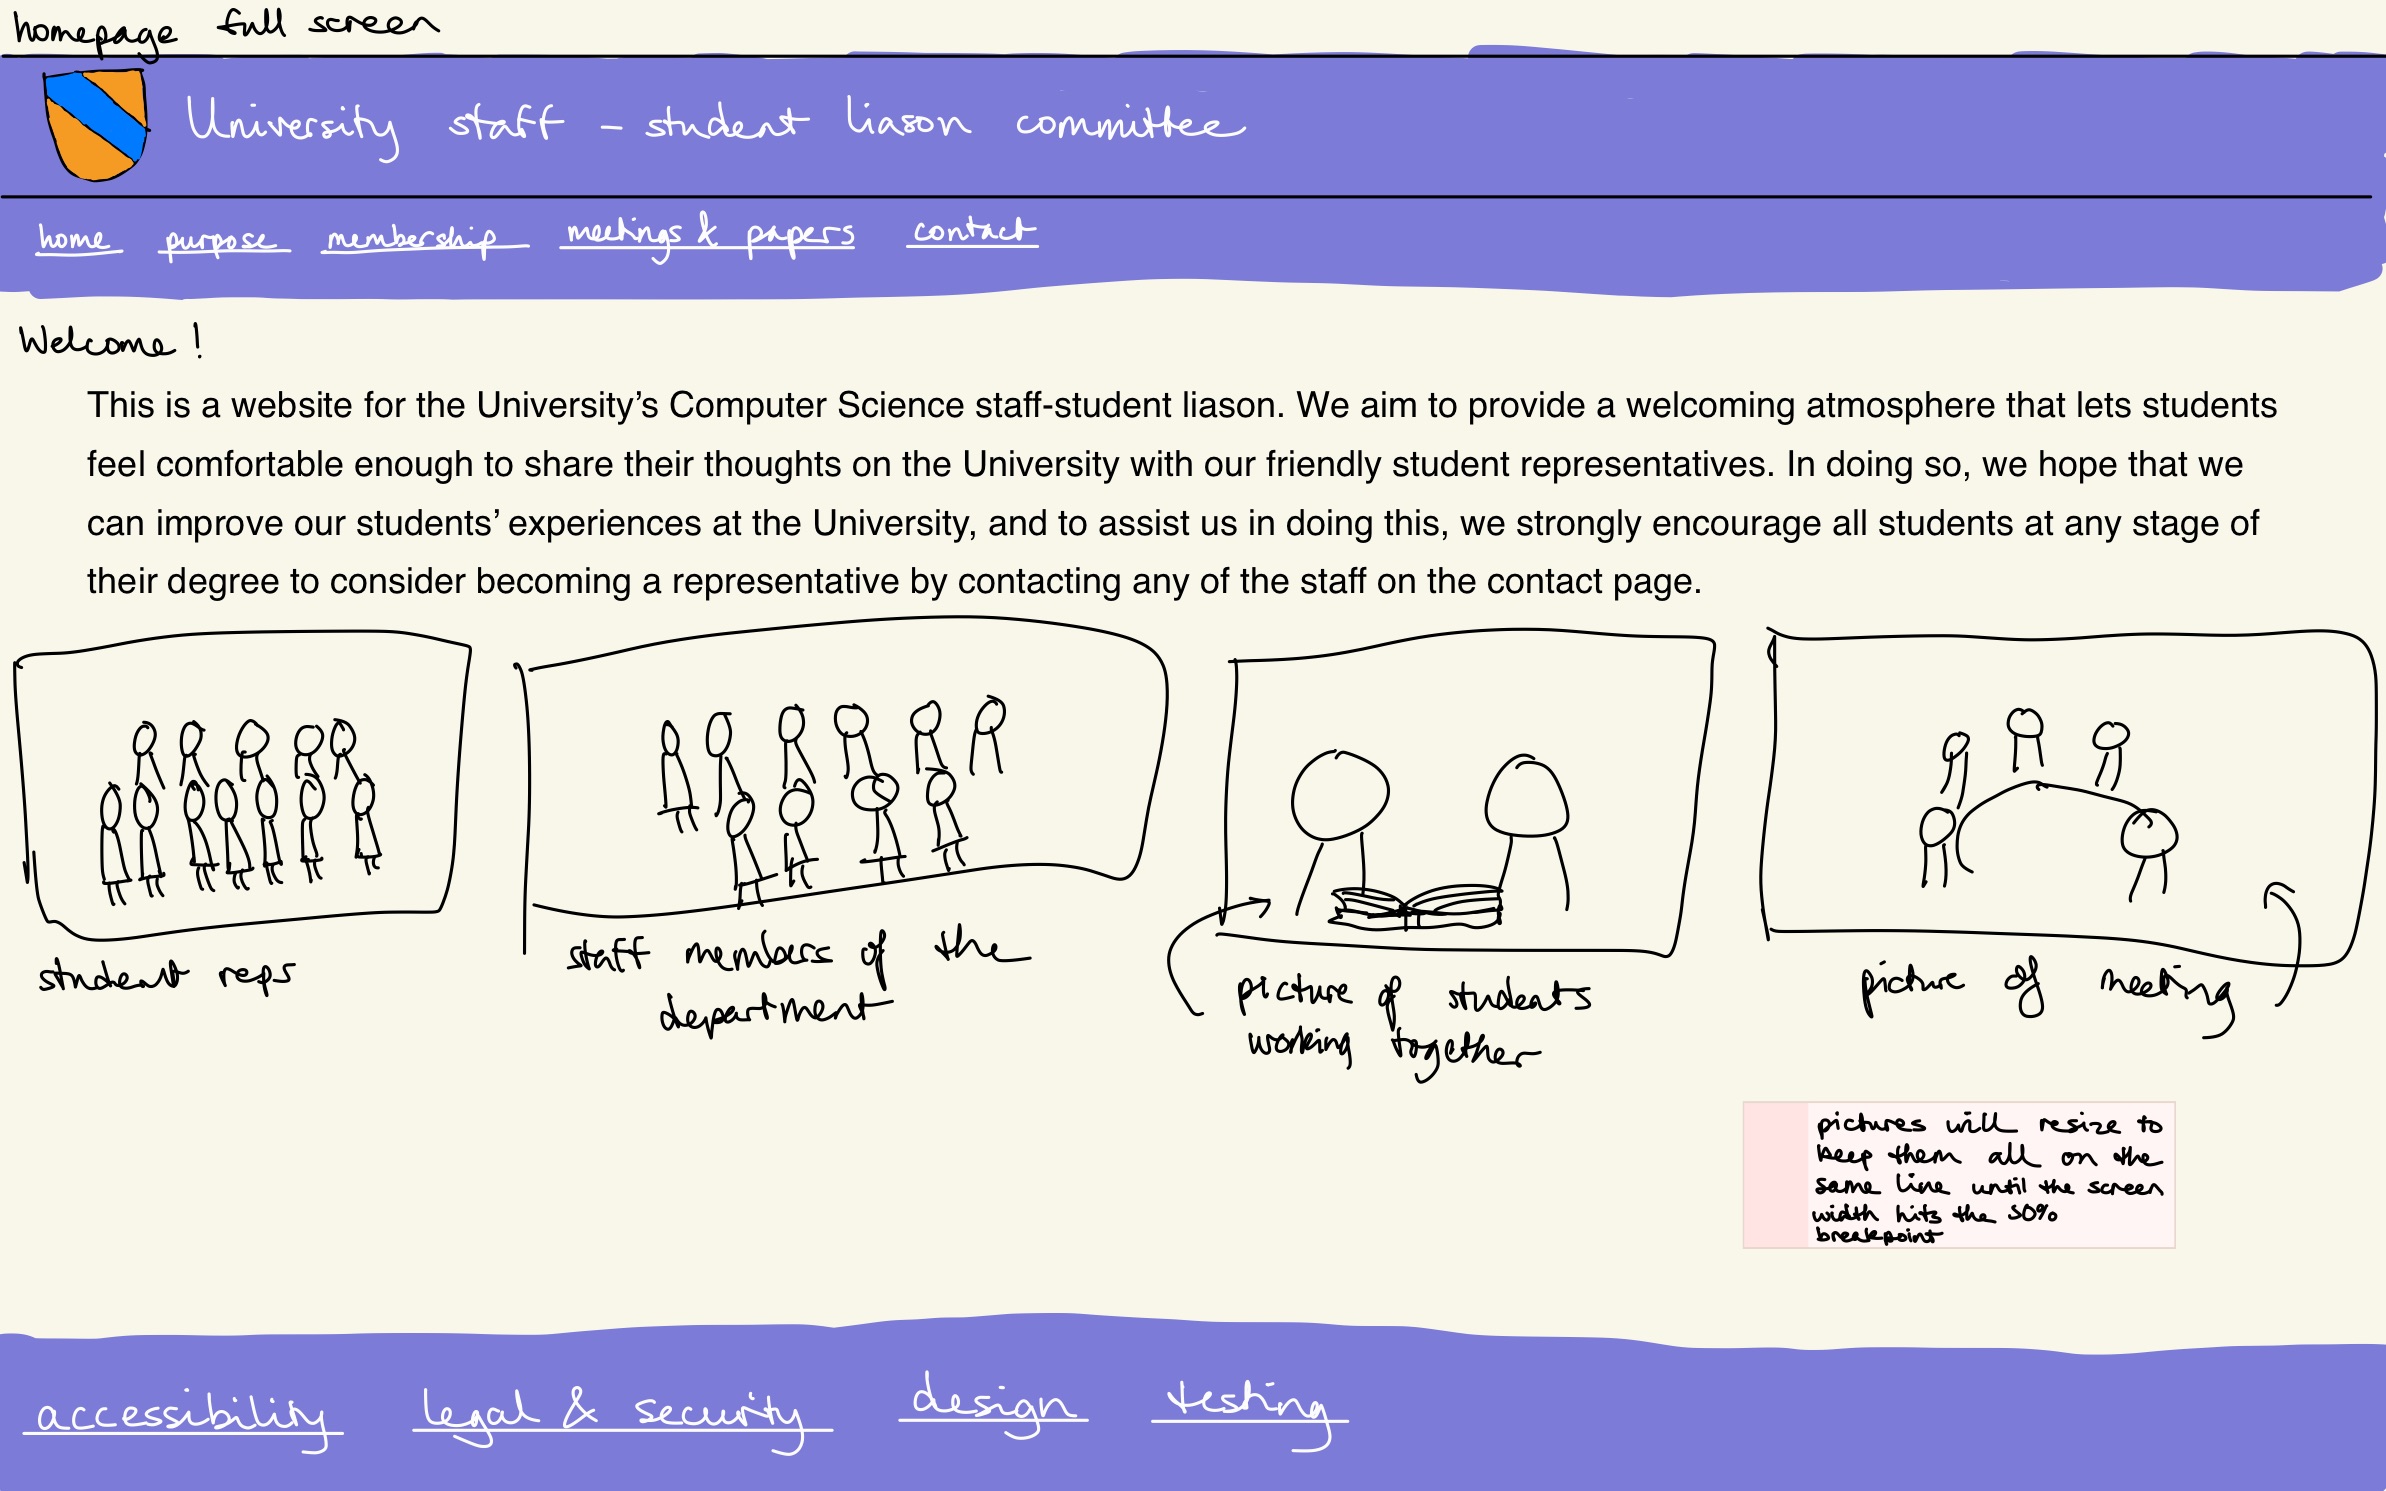 homepage full screen
University staff - student liason committee
home purpose membership meetings & papers contact
Welcome!
This is a website for the University’s Computer Science staff-student liason. We aim to provide a welcoming atmosphere that lets students
feel comfortable enough to share their thoughts on the University with our friendly student representatives. In doing so, we hope that we
can improve our students’ experiences at the University, and to assist us in doing this, we strongly encourage all students at any stage of
their degree to consider becoming a representative by contacting any of the staff on the contact page.
student reps
staff members of the
department
picture of students
working together
picture of meeting
pictures will resize to
keep them all on the
same line until the screen
width hits the 50%
breakpoint
accessibility legal & security design testing